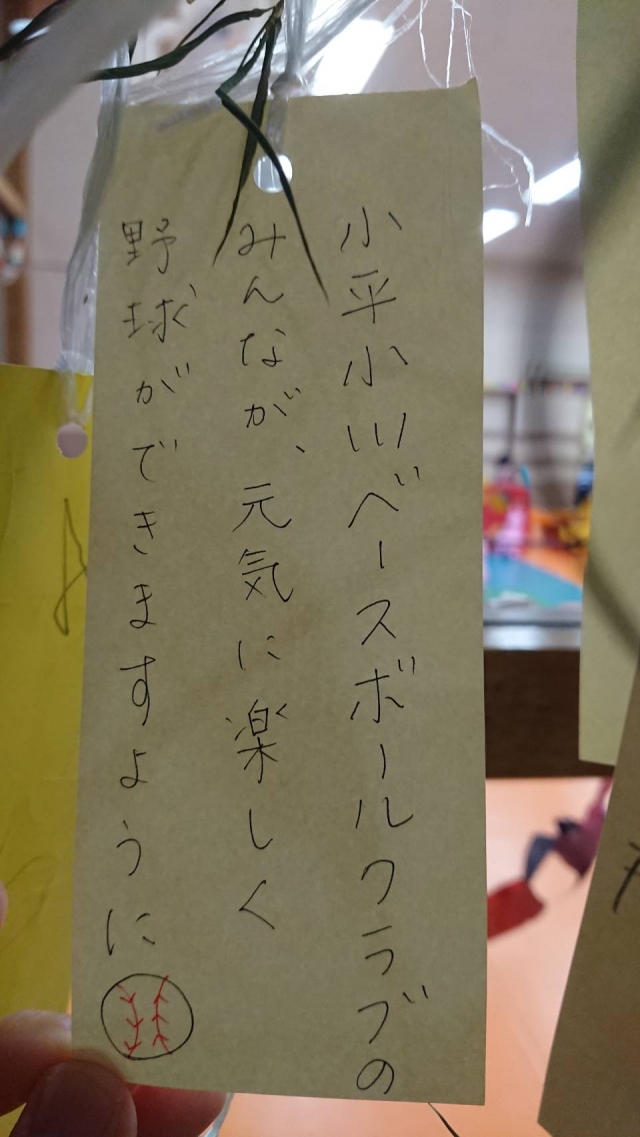 小平小川ベースボールクラブの
みんなが、元気に楽しく
野球ができますように